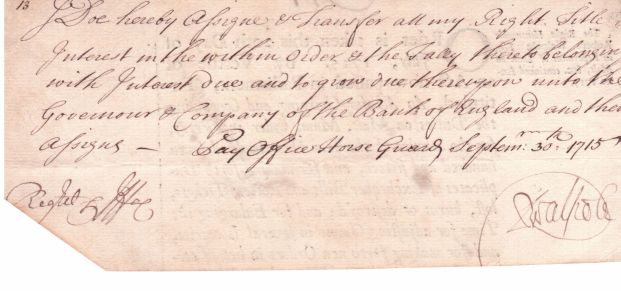 13
I Doe hereby Assigne & Transfer all my Right Title
Interest in the within Order & the Tally thereto belongin
with Interest due and to grow due thereupon unto the
Governour & Company of the Bank of England and thei
Assigns — Pay Office Horse Guards Septemr. 30th. 1715
RWalpole